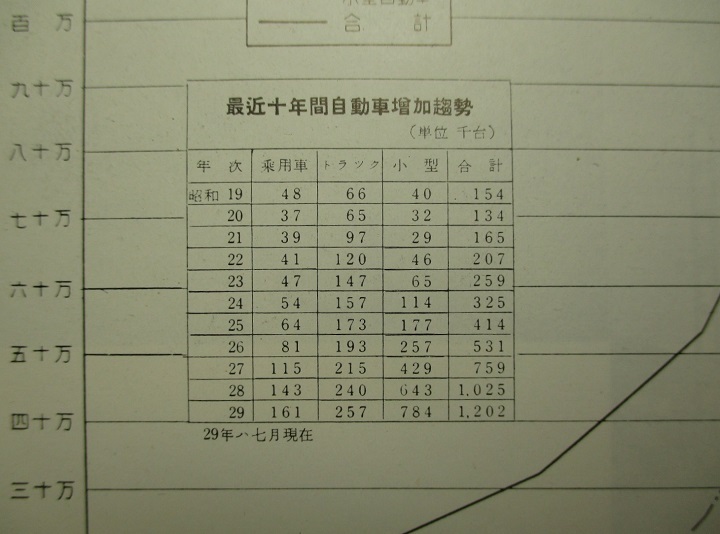 百万
合計
九十万
最近十年間自動車増加趨勢
(単位 千台)
八十万
年次 乗用車 トラック 小型 合計
昭和19 48 66 40 154
七十万
20 37 65 32 134
21 39 97 29 165
22 41 120 46 207
23 47 147 65 259
六十万
24 54 157 114 325
25 64 173 177 414
五十万
26 81 193 257 531
27 115 215 429 759
28 143 240 643 1,025
29 161 257 784 1,202
四十万
29年ハ七月現在
三十万